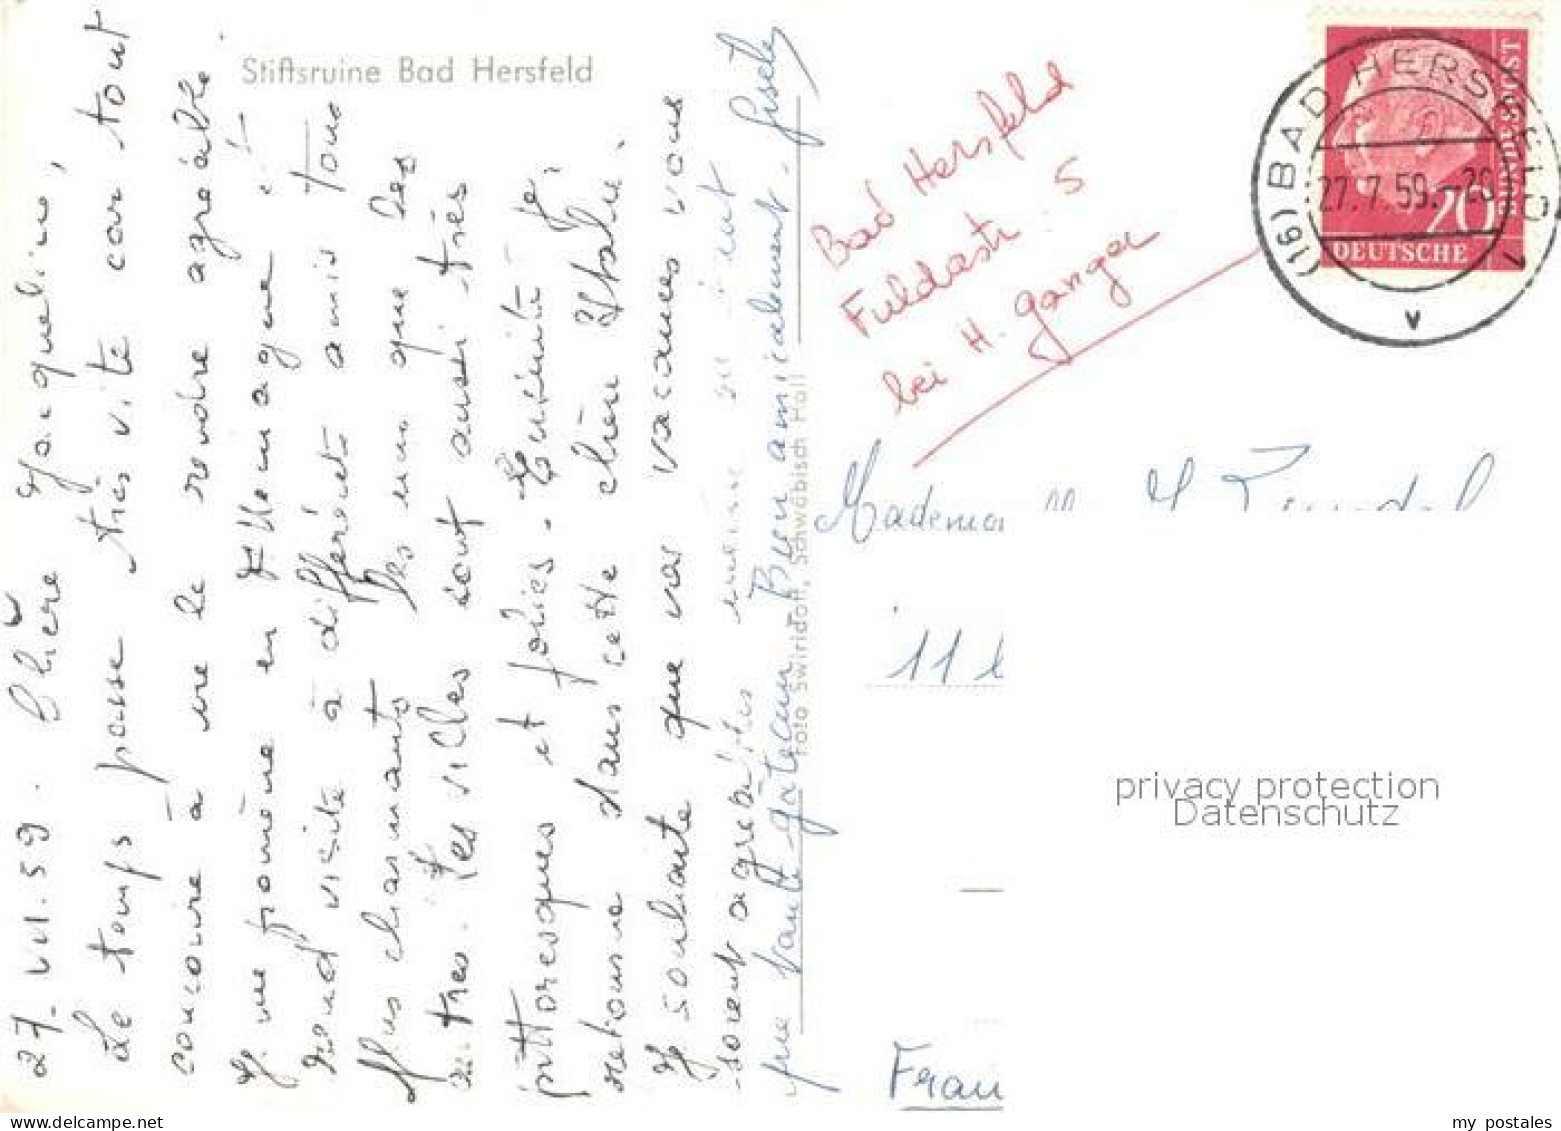 Stiftsruine Bad Hersfeld
27. VII. 59. Chère Jacqueline,
Le temps passe très vite car tout
concoure à me le rendre agréable.
Je me promène en Allemagne et
rend visite à différents amis tous
plus charmants les uns que les
autres. Les villes sont aussi très
pittoresques et jolies. Ensuite je
retourne dans cette chère Italie.
Je souhaite que vos vacances vous
soient agréables
que vaut gâteau Bien amicalement. Gisela
Foto Swiridoff, Schwäbisch Hall
Bad Hersfeld
Fuldastr. 5
bei H. Ganger
(16) BAD HERSFELD 1
27.7.59.-20
v
20
DEUTSCHE
BUNDESPOST
Mademoi
11
Fran
privacy protection
Datenschutz
my postales
www.delcampe.net